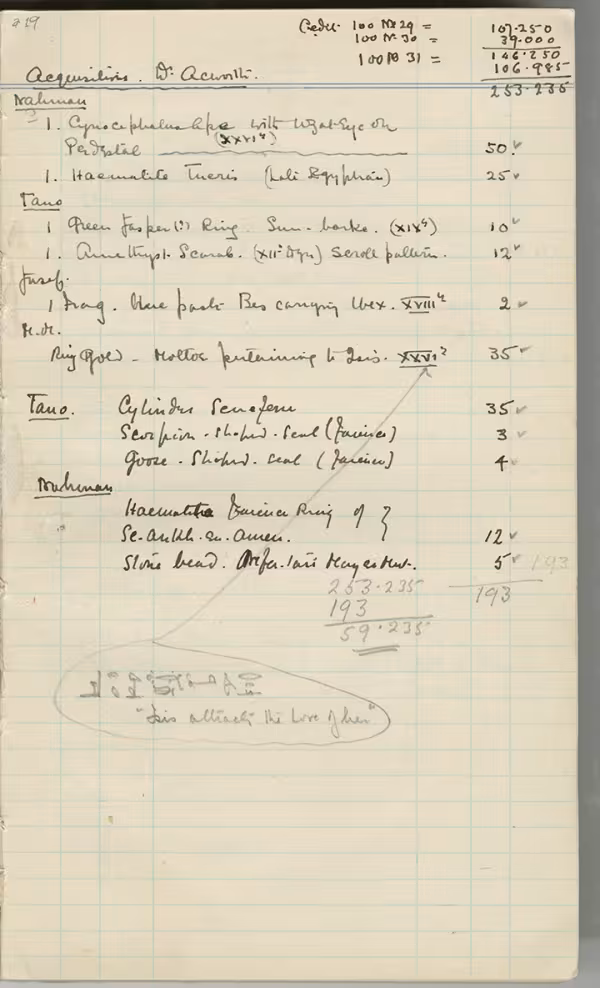 219
Credit 100 No 29 = 107.250
100 No 30 = 39.000
146.250
100 No 31 = 106.985
253.235
Acquisitions. Dr Acworth.
Nahman
1. Cynocephalus Ape with Uzat-Eye on
Pedestal (XXVIth) 50. ✓
1. Haematite Tueris (Late Egyptian) 25 ✓
Tano
1 Green Jasper Ring. Sun-barke. (XIXth) 10 ✓
1. Amethyst Scarab. (XIIth Dyn) Scroll pattern. 12 ✓
Jusef.
1 Frag. blue paste Bes carrying Ibex. XVIIIth 2 ✓
M.M.
Ring Gold - Mottoe pertaining to Isis. XXVIth 35 ✓
Tano. Cylinder Seneferu 35 ✓
Scorpion-shaped-seal (faience) 3 ✓
Goose-Shaped-seal (faience) 4 ✓
Nahman
Haematite Faience Ring of }
Se.ankh.en.amen. 12 ✓
Stone bead. Mut. 5 ✓ 193
253.235
193
193
59.235
"Isis attracts the Love of her"